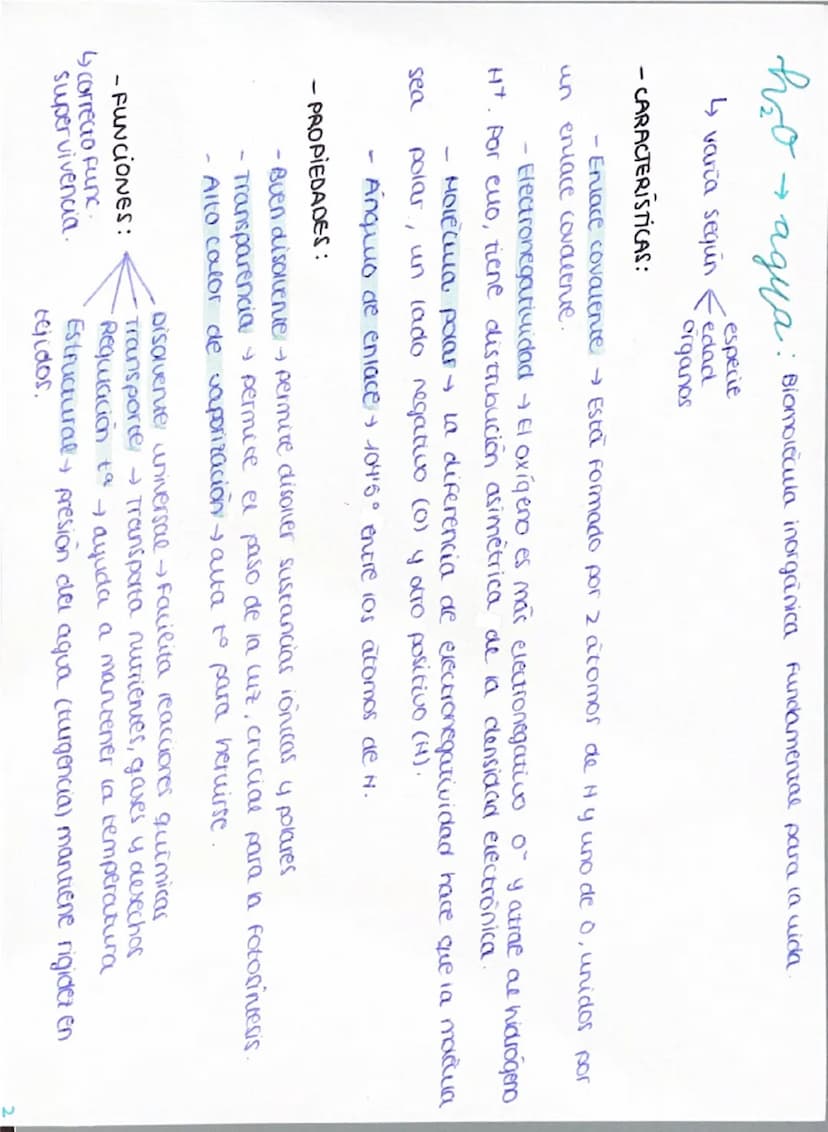 h₂O → agua: Biomolécula inorgánica fundamental para la vida.
↳ varía según
especie
edad
órganos
- CARACTERÍSTICAS:
- Enlace covalente → Está formado por 2 átomos de H y uno de O, unidos por
un enlace covalente.
- Electronegatividad → El oxígeno es más electronegativo O⁻ y atrae al hidrógeno
H⁺. Por ello, tiene distribución asimétrica de la densidad electrónica.
- Molécula polar → La diferencia de electronegatividad hace que la molécula
sea polar, un lado negativo (O) y otro positivo (H).
- Ángulo de enlace → 104'5° entre los átomos de H.
- PROPIEDADES:
- Buen disolvente → permite disolver sustancias iónicas y polares
- Transparencia → permite el paso de la luz, crucial para la fotosíntesis.
- Alto calor de vaporización → alta tº para hervirse.
- FUNCIONES:
↳ correcto func.
supervivencia.
Disolvente universal → Facilita reacciones químicas
Transporte → Transporta nutrientes, gases y desechos
Regulación tª → ayuda a mantener la temperatura
Estructural → presión del agua (turgencia) mantiene rigidez en
tejidos.
2